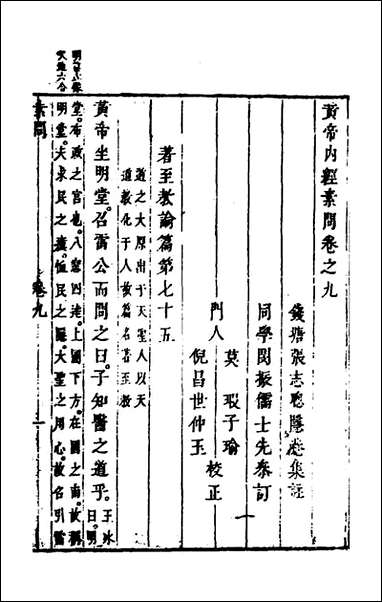 黃帝內經素問卷之九
錢塘張志聰隱菴集註
同學閔振儒士先參訂
門人
莫瑕子瑜
倪昌世仲玉
校正
著至教論篇第七十五
道之大原出于天聖人以天
道教化于人故篇名著至教
黃帝坐明堂。召雷公而問之曰。子知醫之道乎。王冰
曰。明
堂。布政之宮也。八窓四達。上圓下方。在國之南。故稱
明堂。夫求民之瘼。恤民之隱。大聖之用心。故名引雷
素問
卷九
一